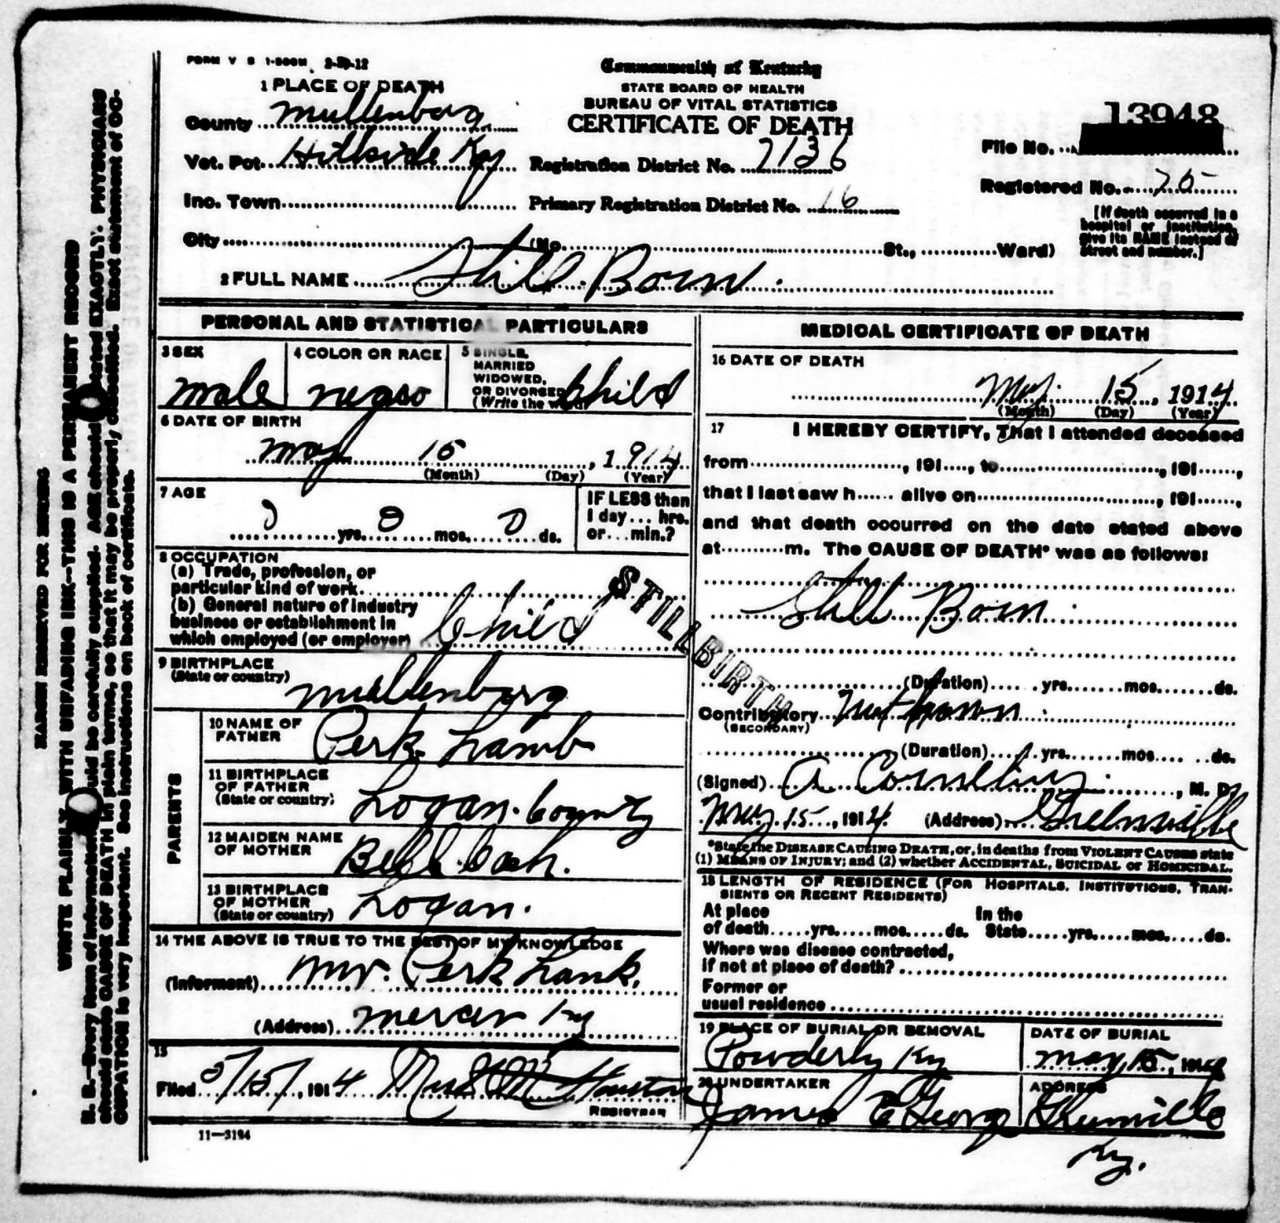 FORM V S 1-500M 2-20-12
Commonwealth of Kentucky
STATE BOARD OF HEALTH
BUREAU OF VITAL STATISTICS
CERTIFICATE OF DEATH
1 PLACE OF DEATH
County Muhlenburg
Vot. Pct. Hillside Ky
Inc. Town
City (No. St., Ward)
Registration District No. 7136
Primary Registration District No. 16
13948
File No.
Registered No. 75
[If death occurred in a
hospital or institution,
give its NAME instead of
street and number.]
2 FULL NAME Still Born.
PERSONAL AND STATISTICAL PARTICULARS
3 SEX
male
4 COLOR OR RACE
negro
5 SINGLE,
MARRIED
WIDOWED,
OR DIVORCED
(Write the word) Child
6 DATE OF BIRTH
may 15, 1914
(Month) (Day) (Year)
7 AGE
0 yrs. 0 mos. 0 ds.
IF LESS than
1 day... hrs.
or...min.?
8 OCCUPATION
(a) Trade, profession, or
particular kind of work
(b) General nature of industry
business or establishment in
which employed (or employer) Child
9 BIRTHPLACE
(State or country) Muhlenburg
PARENTS
10 NAME OF
FATHER Perk Lamb
11 BIRTHPLACE
OF FATHER
(State or country) Logan County
12 MAIDEN NAME
OF MOTHER Bell Cash.
13 BIRTHPLACE
OF MOTHER
(State or country) Logan.
14 THE ABOVE IS TRUE TO THE BEST OF MY KNOWLEDGE
(Informant) Mr. Perk Lank.
(Address) Mercer Ky
15
Filed 5/15/, 1914 Houston
REGISTRAR
11-3194
STILLBIRTH
MEDICAL CERTIFICATE OF DEATH
16 DATE OF DEATH
May. 15, 1914
(Month) (Day) (Year)
17 I HEREBY CERTIFY, That I attended deceased
from , 191 , to , 191 ,
that I last saw h alive on , 191 ,
and that death occurred on the date stated above
at m. The CAUSE OF DEATH* was as follows:
Still Born.
(Duration) yrs. mos. ds.
Contributory
(SECONDARY)
(Duration) yrs. mos. ds.
(Signed) A Cornelius, M. D.
May 15, 1914 (Address) Greenville
*State the DISEASE CAUSING DEATH, or, in deaths from VIOLENT CAUSES state
(1) MEANS OF INJURY; and (2) whether ACCIDENTAL, SUICIDAL or HOMICIDAL.
18 LENGTH OF RESIDENCE (FOR HOSPITALS, INSTITUTIONS, TRAN-
SIENTS OR RECENT RESIDENTS)
At place In the
of death yrs. mos. ds. State yrs. mos. ds.
Where was disease contracted,
if not at place of death?
Former or
usual residence
19 PLACE OF BURIAL OR REMOVAL
Powderly Ky
DATE OF BURIAL
May 15, 1914
20 UNDERTAKER
James E George
ADDRESS
Greenville
Ky.
MARGIN RESERVED FOR BINDING
WRITE PLAINLY WITH UNFADING INK--THIS IS A PERMANENT RECORD
N. B.--Every item of information should be carefully supplied. AGE should be stated EXACTLY. PHYSICIANS
should state CAUSE OF DEATH in plain terms, so that it may be properly classified. Exact statement of OC-
CUPATION is very important. See instructions on back of certificate.